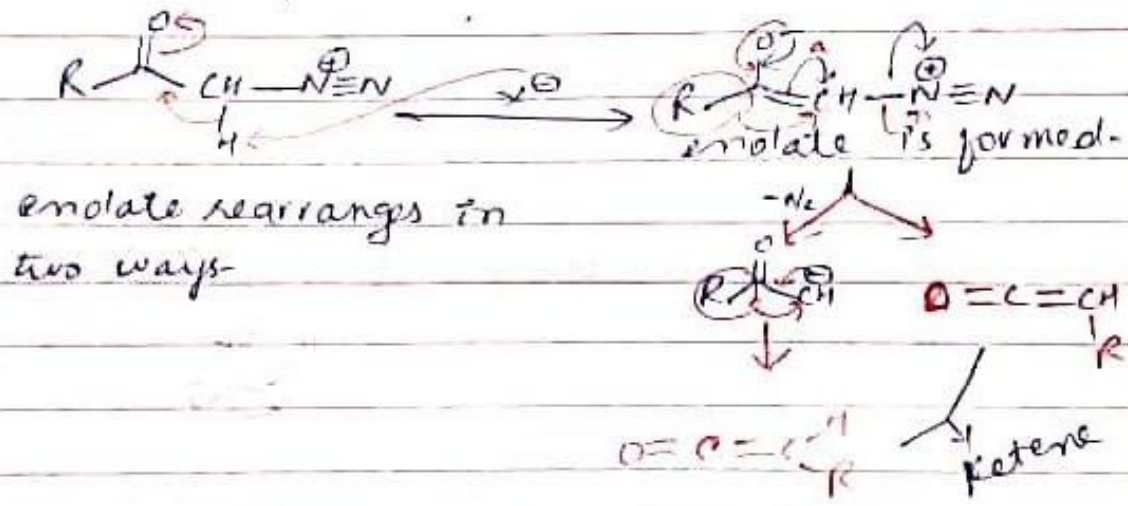 O
R CH — N⊕ ≡ N
H
⊖
O
R CH — N⊕ ≡ N
enolate is formed-
enolate rearranges in
two ways-
-N2
O
R CH ⊖
O = C = CH
R
O = C = C H
R
Ketene